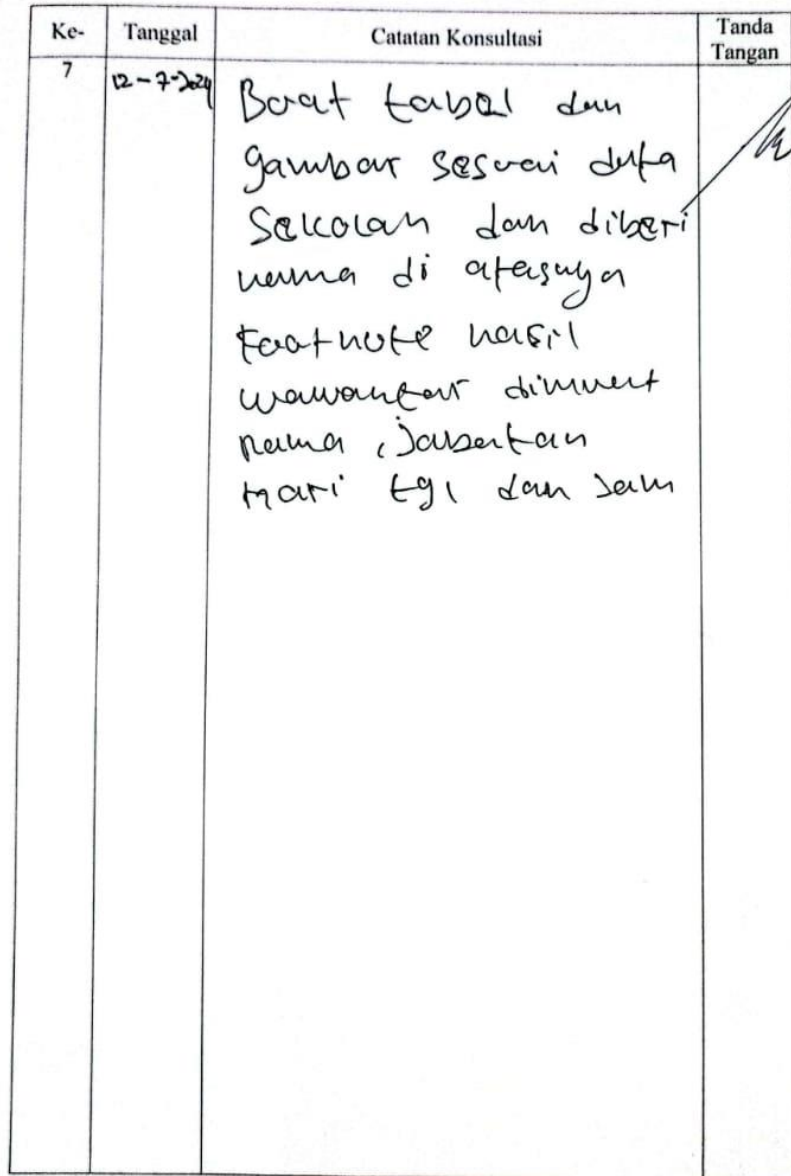 Ke- Tanggal Catatan Konsultasi Tanda Tangan
7 12-7-2024 Buat tabel dan
gambar sesuai data
Sekolah dan diberi
nama di atasnya
Footnote hasil
wawancar dimuat
nama, Jabatan
Hari tgl dan Jam